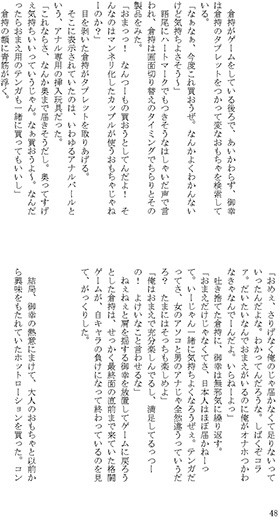 倉持がゲームをしている後ろで、あいかわらず、御幸
は倉持のタブレットをつかって変なおもちゃを検索して
いる。
「なぁなぁ、今度これ買おうぜ。なんかよくわかんない
けど気持ちよさそう！」
語尾にハートマークでもつきそうなはしゃいだ声で言
われ、倉持は画面切り替えのタイミングでちらりとその
製品をみた。
「おまっっ！　なんつーもの買おうとしてんだよ！　そ
んなのはマンネリ化したカップルが使うおもちゃじゃね
ーのか？」
目を剥いた倉持がタブレットを取りあげる。
そこに表示されていたのは、いわゆるアナルパールと
いう、アナル専用の挿入玩具だった。
「これならさ、なんか奥まで届きそうだし。奥ってすげ
え気持ちいいっていうじゃん。なぁ買おうよ〜。なんだ
ったらおまえ用のテンガも一緒に買ってもいいし」
倉持の額に青筋が浮く。
「おめぇ、さりげなく俺のじゃ届かなくて足りないって
いったんだよな、わかってんだろうな、しばくぞコラ
ァ。だいたいなんでおまえがいるのに俺がオナホつかわ
なきゃなんでーんだよ。いらねーよっ」
吐き捨てた倉持に、御幸は無邪気に繰り返す。
「おまえだけじゃなくてさ、日本人はほぼ届かねーっ
て。いーじゃん一緒に気持ちよくなろうぜぇ。テンガだ
ってさ、女のアソコと男のアナじゃ全然違うっていうだ
ろ？　たまにはそっちも楽しめよ」
「俺はおまえで充分楽しんでるし、満足してるっつー
の！　よけいなこと言わせるな」
ねぇねぇと肩を揺する御幸を放置してゲームに戻ろう
とした倉持は、せっかく最終面の直前まで来ていた格闘
ゲームが、自キャラの負けになって終わっているのを見
て、がっくりした。
結局、御幸の熱意にまけて、大人のおもちゃと以前か
ら興味をもたれていたホットローションを買った。コン
48